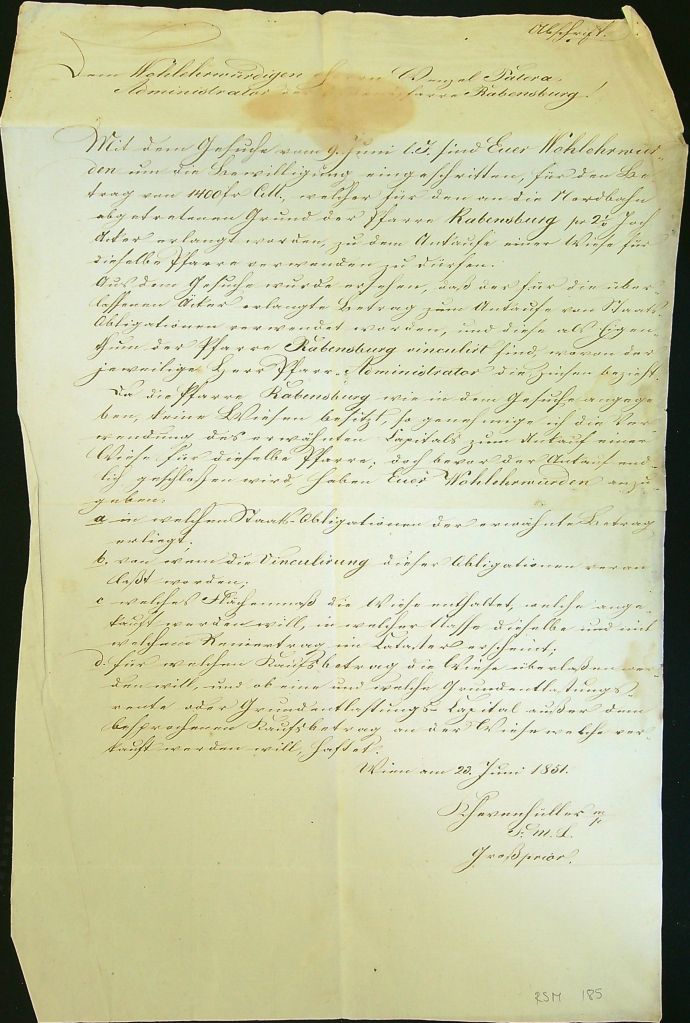 Abschrift.
Dem Wohlehrwürdigen Herrn Wenzel Patera
Administrator der Pfarre Rabensburg!
Mit dem Gesuche vom 9. Juni l. J. sind Euer Wohlehrwür-
den um die Bewilligung eingeschritten, für den Be-
trag von 1400 fr CM., welcher für den an die Nordbahn
abgetretenen Grund der Pfarre Rabensburg pr 2 Joch
Acker erlangt worden, zu dem Ankaufe einer Wiese für
dieselbe Pfarre verwenden zu dürfen.
Aus dem Gesuche wurde ersehen, daß der für die über-
lassenen Äcker erlangte Betrag zum Ankaufe von Staats-
Obligationen verwendet worden, und diese als Eigen-
thum der Pfarre Rabensburg vinculirt sind, wovon der
jeweilige Herr Pfarr-Administrator die Zinsen bezieht.
Da die Pfarre Rabensburg wie in dem Gesuche angege-
ben, keine Wiesen besitzt, so genehmige ich die Ver-
wendung des erwähnten Capitals zum Ankauf einer
Wiese für dieselbe Pfarre; doch bevor der Ankauf end-
lich geschlossen wird, haben Euer Wohlehrwürden anzu-
geben:
a in welchen Staats-Obligationen der erwähnte Betrag
erliegt;
b. von wem die Vinculirung dieser Obligationen veran-
laßt worden;
c welches Flächenmaß die Wiese enthaltet, welche ange-
kauft werden will, in welcher Classe dieselbe und mit
welchem Reinertrag im Cataster erscheint;
d. für welchen Kaufsbetrag die Wiese überlaßen wer-
den will, und ob eine und welche Grundentlastungs-
rente oder Grundentlastungs-Capital außer dem
besprochenen Kaufsbetrag an der Wiese welche ver-
kauft werden will, haftet.
Wien am 23. Juni 1851.
Khevenhüller m/p
F. M. L.
Großprior.
RSM 185